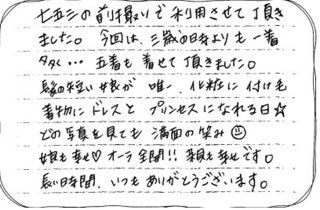 七五三の前撮りで利用させて頂き
ました。今回は、三歳の時よりも一着
多く…五着も着せて頂きました。
髪の短い娘が唯一、化粧に付け毛
着物にドレスとプリンセスになれる日☆
どの写真を見ても満面の笑み☺
娘も幸せ♡オーラ全開!!親も幸せです。
長い時間、いつもありがとうございます。